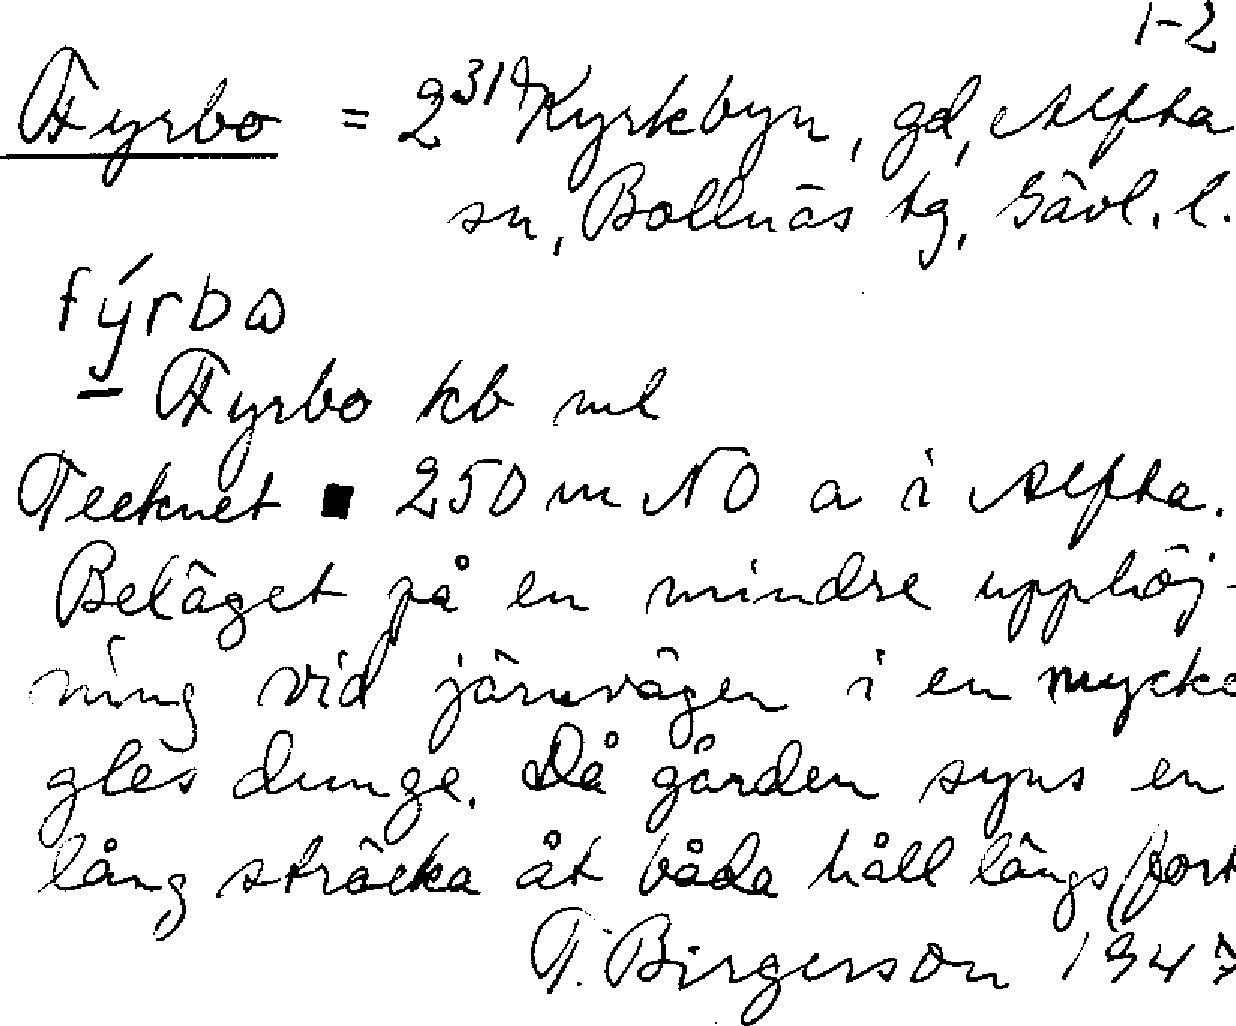 1-2
Fyrbo = 2³¹⁹ Kyrkbyn, gd, Alfta
sn, Bollnäs tg, Gävl. l.
fýrbω
- Fyrbo kb ml
Tecknet ■ 250 m NO a i Alfta.
Beläget på en mindre upphöj-
ning vid järnvägen i en mycke
gles dunge. Då gården syns en
lång sträcka åt båda håll längs (fort
T. Birgerson 1947